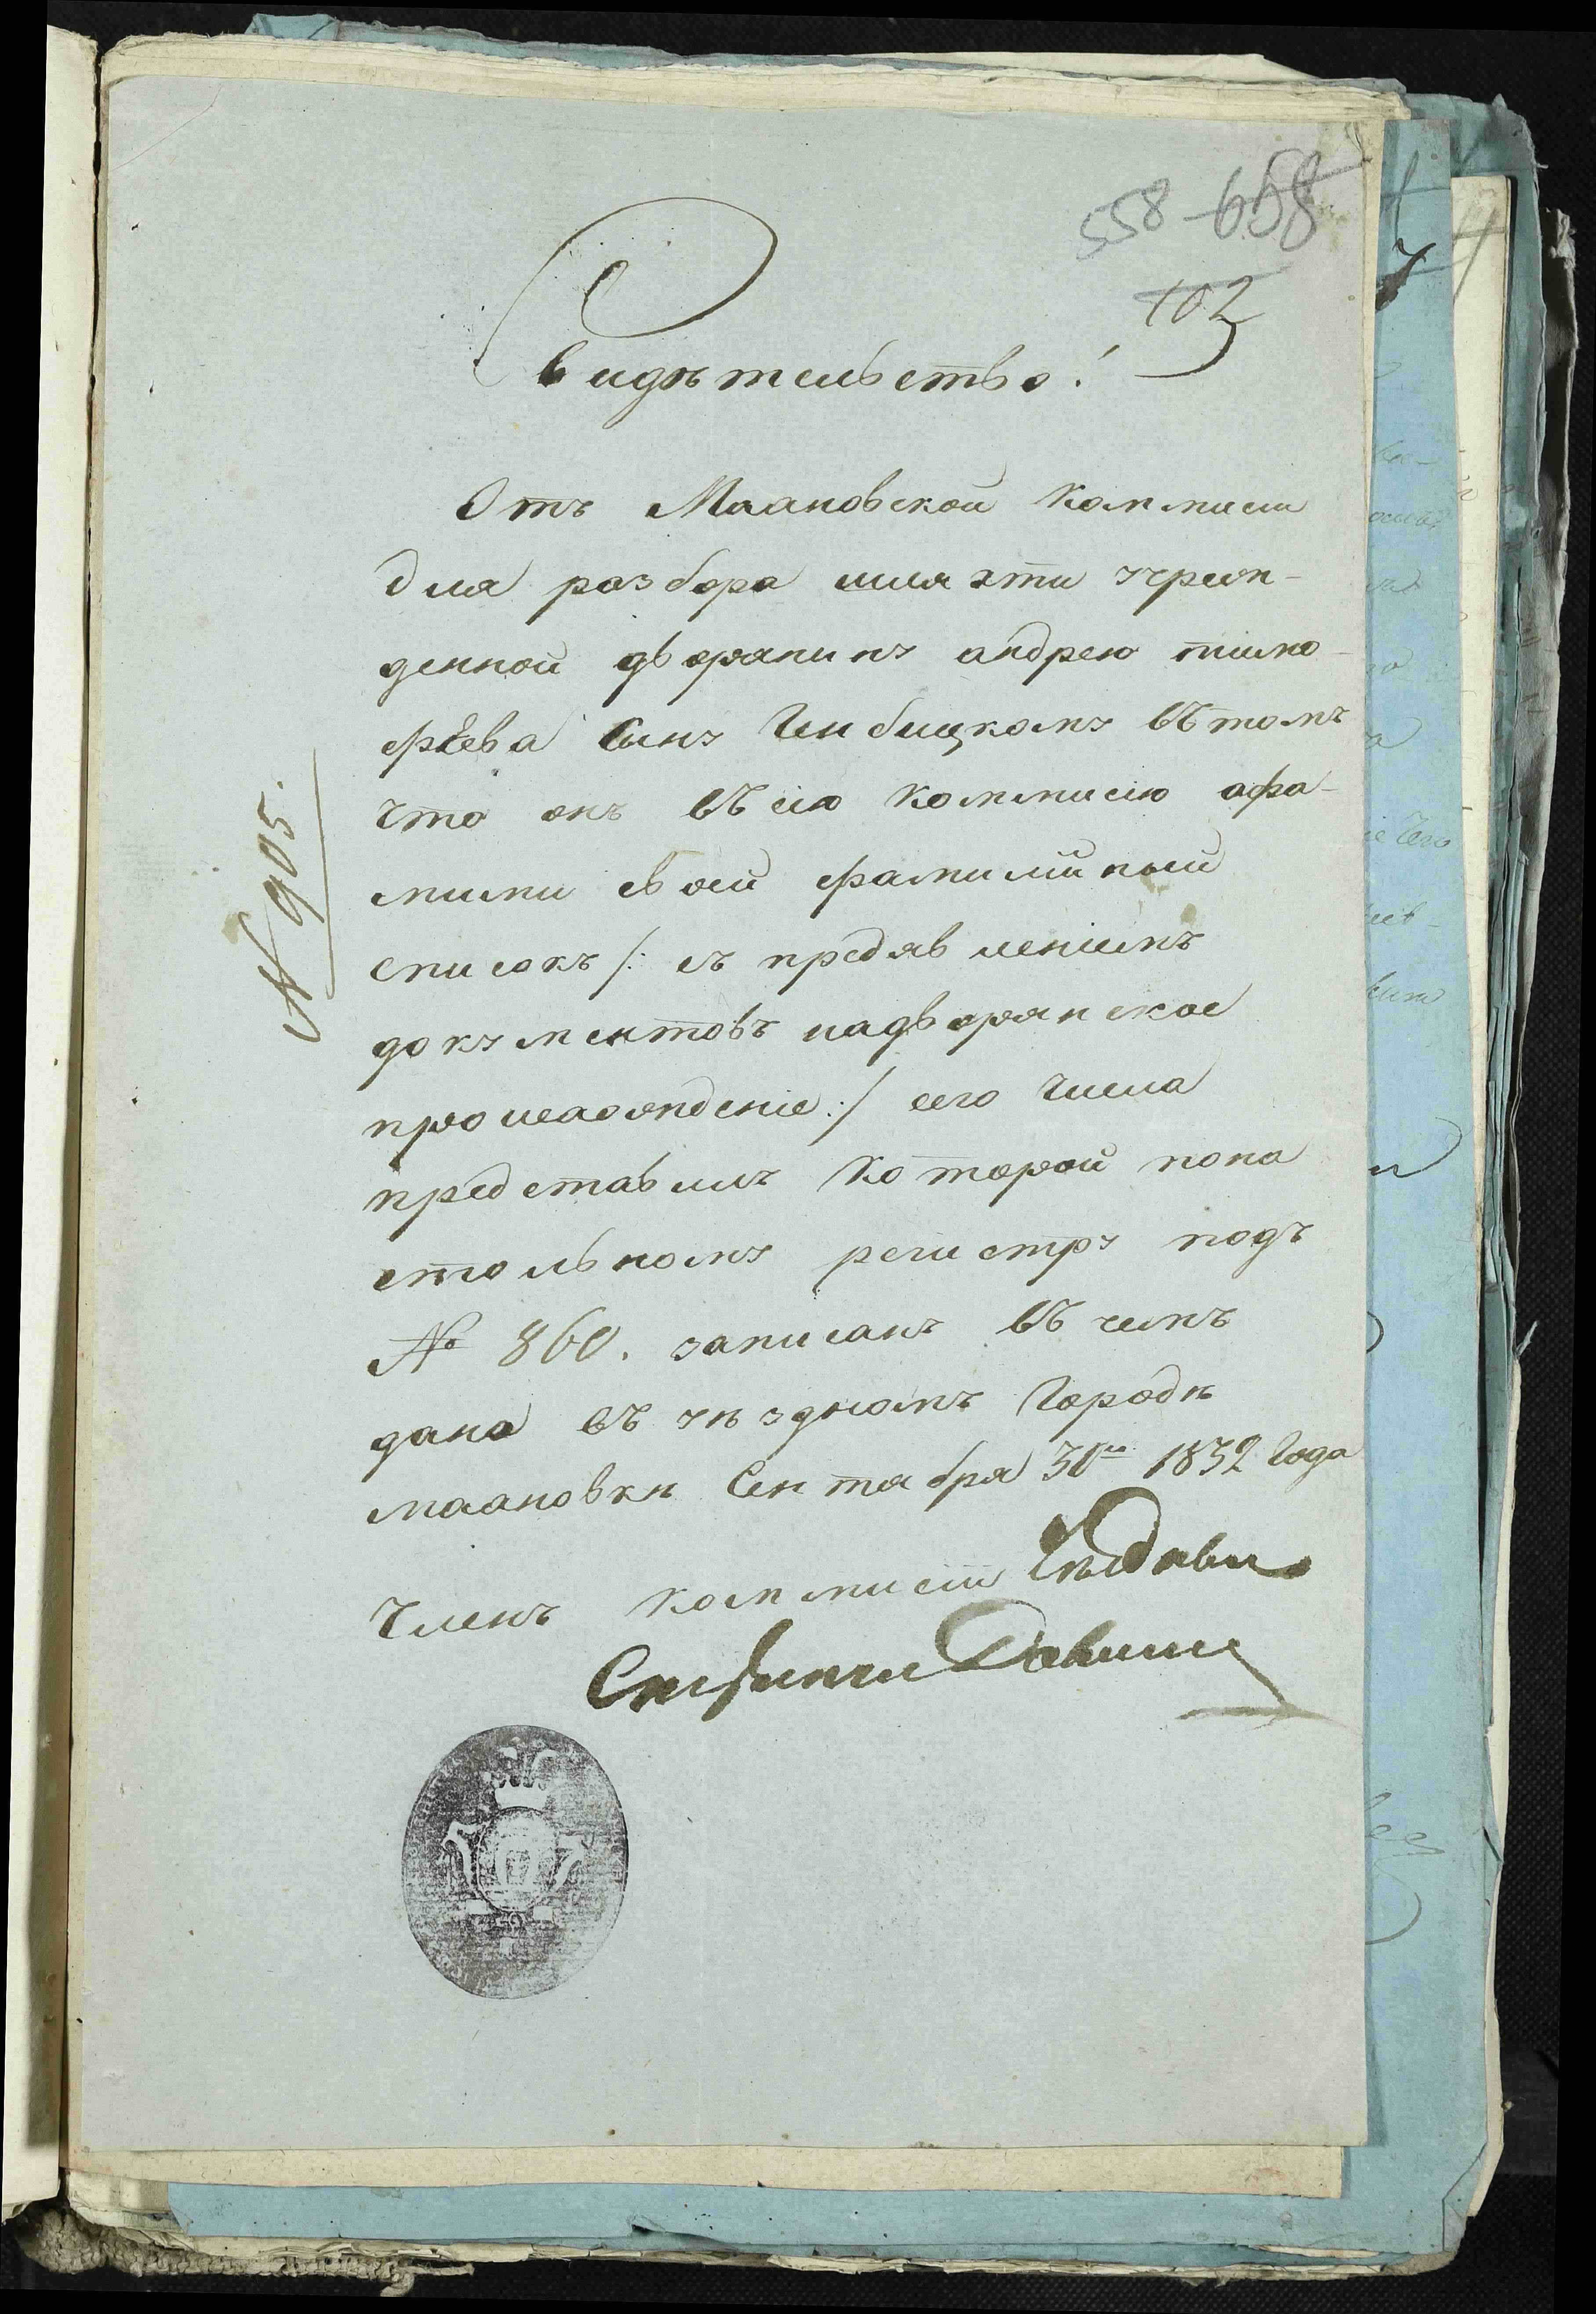 558 658
102
Свидѣтельство!
Отъ Махновской Коммисіи
для разбора шляхти учреж-
денной дворянину андрею тимо-
фѣева сыну Чембицкому въ томъ
что онъ въ сію коммисію офа-
миліи своей фамилійный
Списокъ /: съ предявленіемъ
документовъ надворянское
происхождение :/ сего числа
представилъ которой попа
стольному регистру подъ
№ 860. записанъ въ чемъ
дано въ уѣздномъ Городѣ
махновки Сентября 30го 1832 Года
№ 905.
Членъ коммисіи